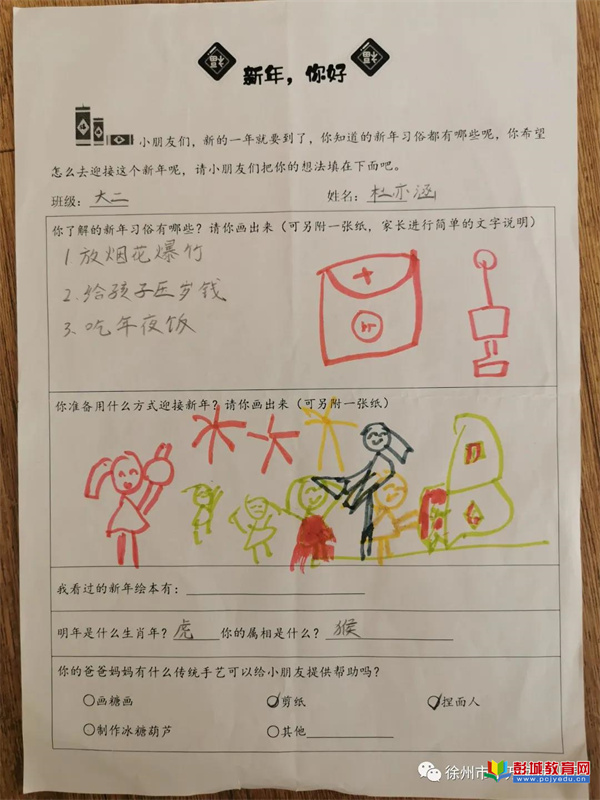 福 福
新年，你好
小朋友们，新的一年就要到了，你知道的新年习俗都有哪些呢，你希望
怎么去迎接这个新年呢，请小朋友们把你的想法填在下面吧。
班级：大二 姓名：杜亦涵
你了解的新年习俗有哪些？请你画出来（可另附一张纸，家长进行简单的文字说明）
1 放烟花爆竹
2.给孩子压岁钱
3.吃年夜饭
你准备用什么方式迎接新年？请你画出来（可另附一张纸）
我看过的新年绘本有：
明年是什么生肖年？虎 你的属相是什么？猴
你的爸爸妈妈有什么传统手艺可以给小朋友提供帮助吗？
○画糖画 ○剪纸 ○捏面人
○制作冰糖葫芦 ○其他
徐州市
彭城教育网
www.pcjyedu.cn